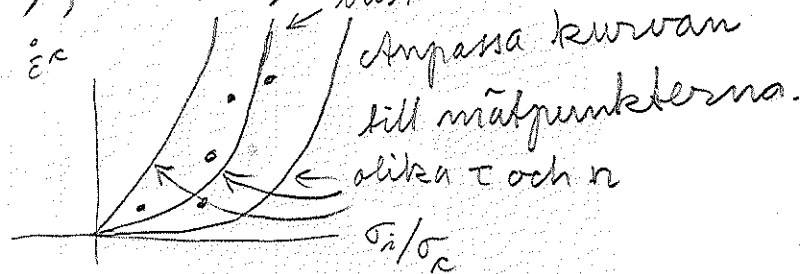 Anpassa kurvan
ε̇ᶜ
till mätpunkterna.
olika τ och n
σᵢ/σ_c